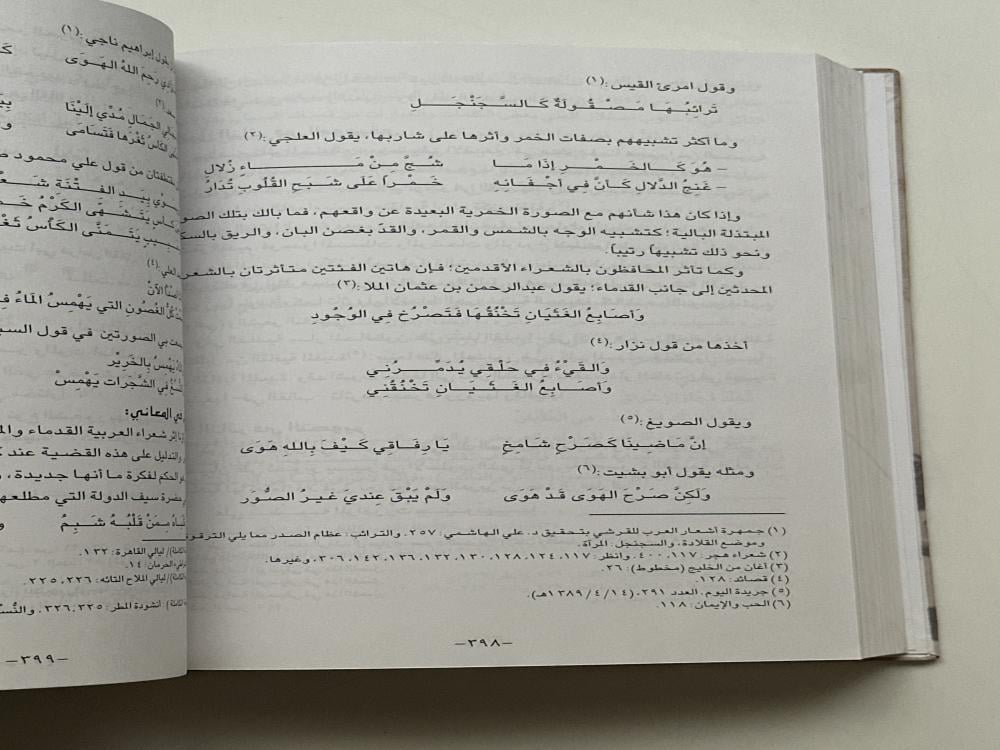 وقول امرئ القيس:(١)
تَرائِبُهَا مَصْقُولَةٌ كَالسَّجَنْجَلِ
وما أكثر تشبيههم بصفات الخمر وأثرها على شاربها، يقول العلجي:(٢)
– هُوَ كَالخَمْرِ إِذَا مَا شُجَّ مِنْ مَاءٍ زُلالِ
– غَنِجُ الدَّلالِ كَأَنَّ فِي أَجْفَانِهِ خَمْراً عَلَى شَبَحِ القُلُوبِ تُدَارُ
وإذا كان هذا شأنهم مع الصورة الخمرية البعيدة عن واقعهم، فما بالك بتلك الصو
المبتذلة البالية؛ كتشبيه الوجه بالشمس والقمر، والقدّ بغصن البان، والريق بالسك
ونحو ذلك تشبيهاً رتيباً.
وكما تأثر المحافظون بالشعراء الأقدمين؛ فإن هاتين الفئتين متأثرتان بالشعر
المحدثين إلى جانب القدماء؛ يقول عبدالرحمن بن عثمان الملا:(٣)
وَأَصَابِعُ الغَثَيَانِ تَخْنُقُهَا فَتَصْرُخ فِي الوُجُودِ
أخذها من قول نزار:(٤)
وَالقَيْءُ فِي حَلْقِي يُدَمِّرُنِي
وَأَصَابِعُ الغَثَيَانِ تَخْنُقُنِي
ويقول الصويغ:(٥)
إِنَّ مَاضِينَا كَصَرْحٍ شَامِخٍ يَا رِفَاقِي كَيْفَ بِاللهِ هَوَى
ومثله يقول أبو بشيت:(٦)
وَلَكِنَّ صَرْحَ الهَوَى قَدْ هَوَى وَلَمْ يَبْقَ عِندِيَ غَيرُ الصُّوَر
(١) جمهرة أشعار العرب للقرشي بتحقيق د. علي الهاشمي: ٢٥٧. والترائب: عظام الصدر مما يلي الترقو
وموضع القلادة. والسجنجل: المرآة
(٢) شعراء هجر: ١١٧، ٤٠٠. وانظر: ١١٧، ١٢٤، ١٢٨، ١٣٠، ١٣٢، ١٣٦، ١٤٢، ٣٠٦، وغيرها.
(٣) أغان من الخليج (مخطوط): ٢٦.
(٤) قصائد: ١٢٨.
(٥) جريدة اليوم. العدد ٣٩١، (١٣٨٩/٤/١٤هـ).
(٦) الحب والإيمان: ١١٨.
–٣٩٨–
يقول إبراهيم ناجي:(١)
رَحِمَ اللهُ الهَوَى
الجَمَالِ مُدِّي إِلَيْنَا
الكَأْسُ ثَغْرَهَا فَتَسَامَى
من قول علي محمود
بِيَدِ الفِتْنَة
كَأْسٍ يَتَشَهَّى الكَرْمُ
يَتَمَنَّى الكَأْسُ
الغُصُونِ التي يَهْمِسُ المَاءُ
الصورتين في قول
يَهْمِسُ بِالخَرِيْر
فِي الشَّجَرَات يَهْمِسْ
في المعاني:
شعراء العربية القدماء
والتدليل على هذه القضية عند
الحكم لفكرة ما أنها جديدة،
سيف الدولة التي مطلعها
مِمَنْ قَلْبُهُ شَبِمُ
ليالي القاهرة: ١٣٢.
الحرمان: ١٤.
ليالي الملاح التائه: ٢٢٦، ٢٢٥.
أنشودة المطر: ٣٢٥، ٣٢٦.
–٣٩٩–